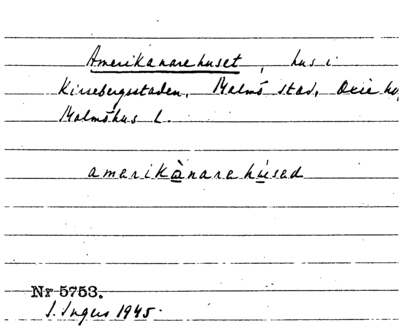 Amerikanarehuset, hus i
Kirsebergsstaden, Malmö stad, Oxie hd,
Malmöhus L.
amerikànarehúsed
Nr 5753.
1945.